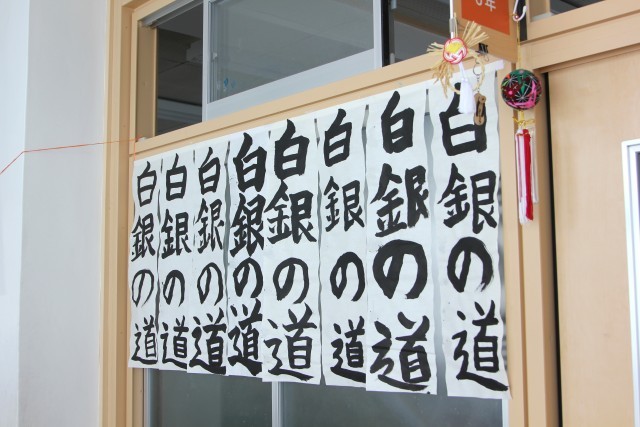 白銀の道
白銀の道
白銀の道
白銀の道
白銀の道
白銀の道
白銀の道
白銀の道